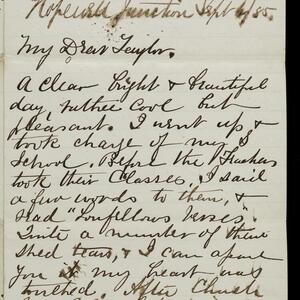 Hopewell Junction Sept 6/85.
My Dear Taylor.
A clear bright & beautiful
day, rather cool but
pleasant. I went up &
took charge of my
School. Before the Teachers
took their Classes, I said
a few words to them, &
read "Longfellows verses".
Quite a number of them
shed tears, & I can
you my heart was
touched. After Church